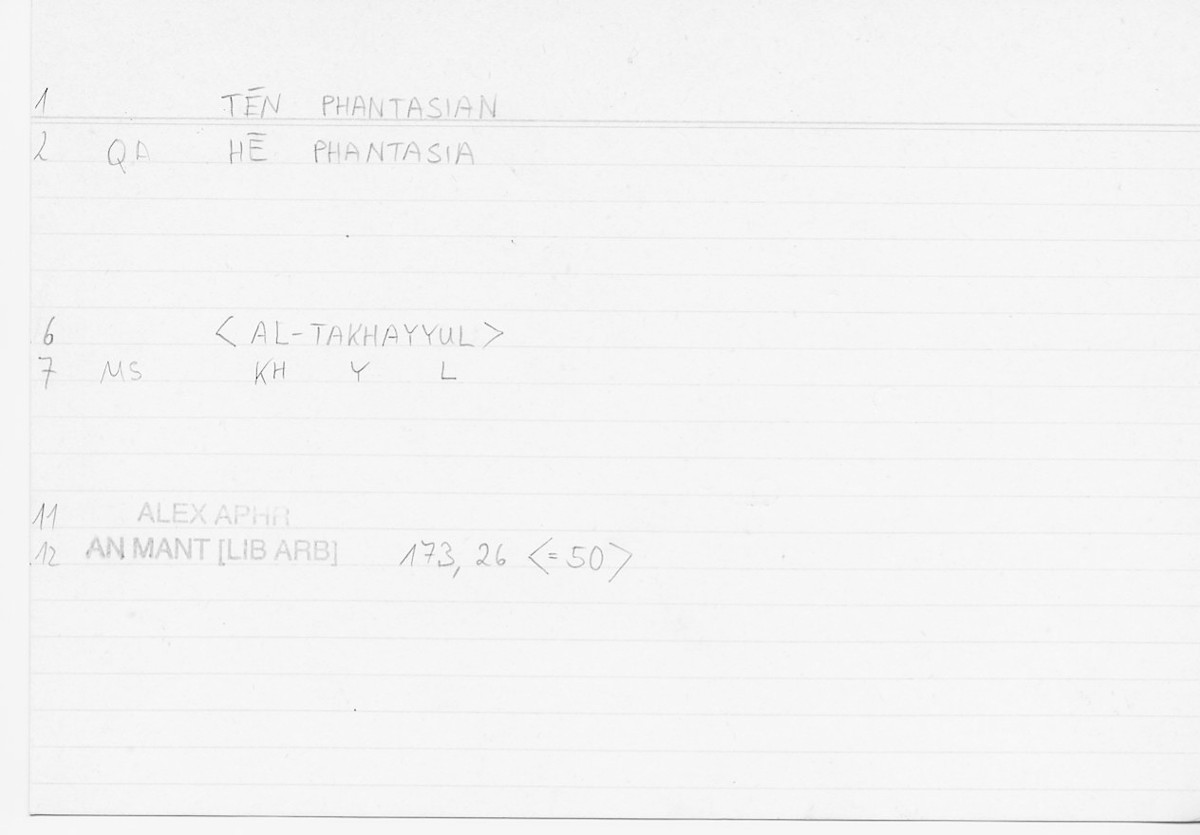 1 TĒN PHANTASIAN
2 QA HĒ PHANTASIA
6 < AL-TAKHAYYUL >
7 MS KH Y L
11 ALEX APHR
12 AN MANT [LIB ARB] 173, 26 <= 50>